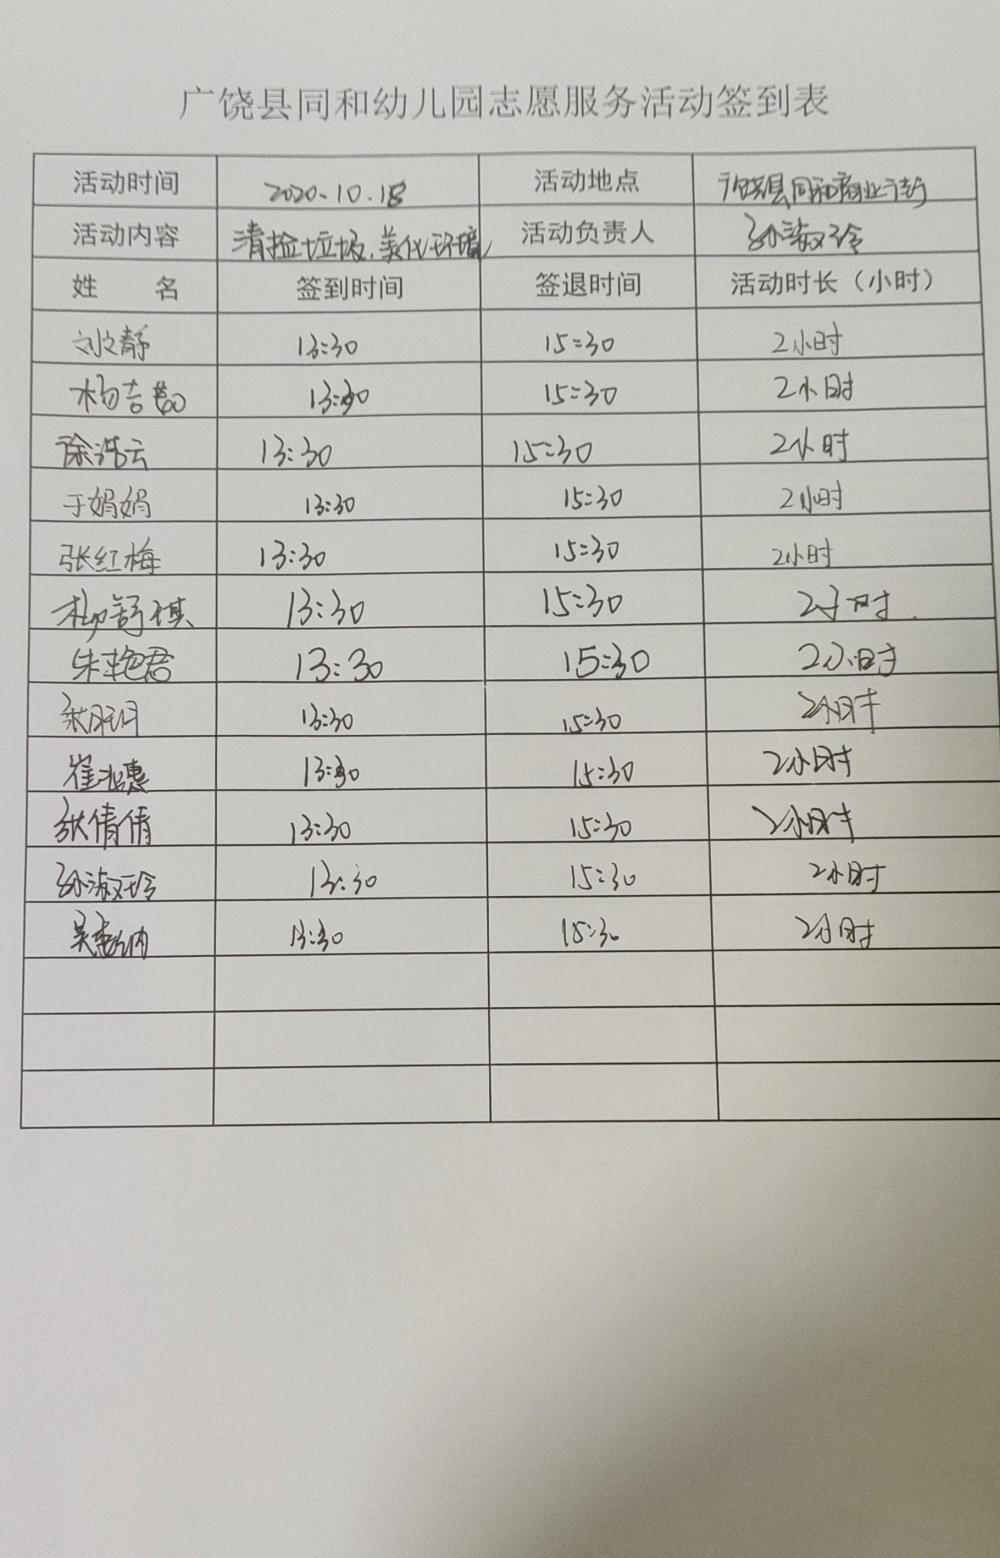 广饶县同和幼儿园志愿服务活动签到表
活动时间 2020.10.18 活动地点 广饶县同和商业街
活动内容 清捡垃圾、美化环境 活动负责人 孙淑玲
姓 名 签到时间 签退时间 活动时长（小时）
刘文静 13:30 15:30 2小时
杨吉 13:30 15:30 2小时
徐浩云 13:30 15:30 2小时
于娟娟 13:30 15:30 2小时
张红梅 13:30 15:30 2小时
柳舒祺 13:30 15:30 2小时
朱艳君 13:30 15:30 2小时
13:30 15:30 2小时
崔兆惠 13:30 15:30 2小时
张倩倩 13:30 15:30 2小时
孙淑玲 13:30 15:30 2小时
吴 13:30 15:30 2小时